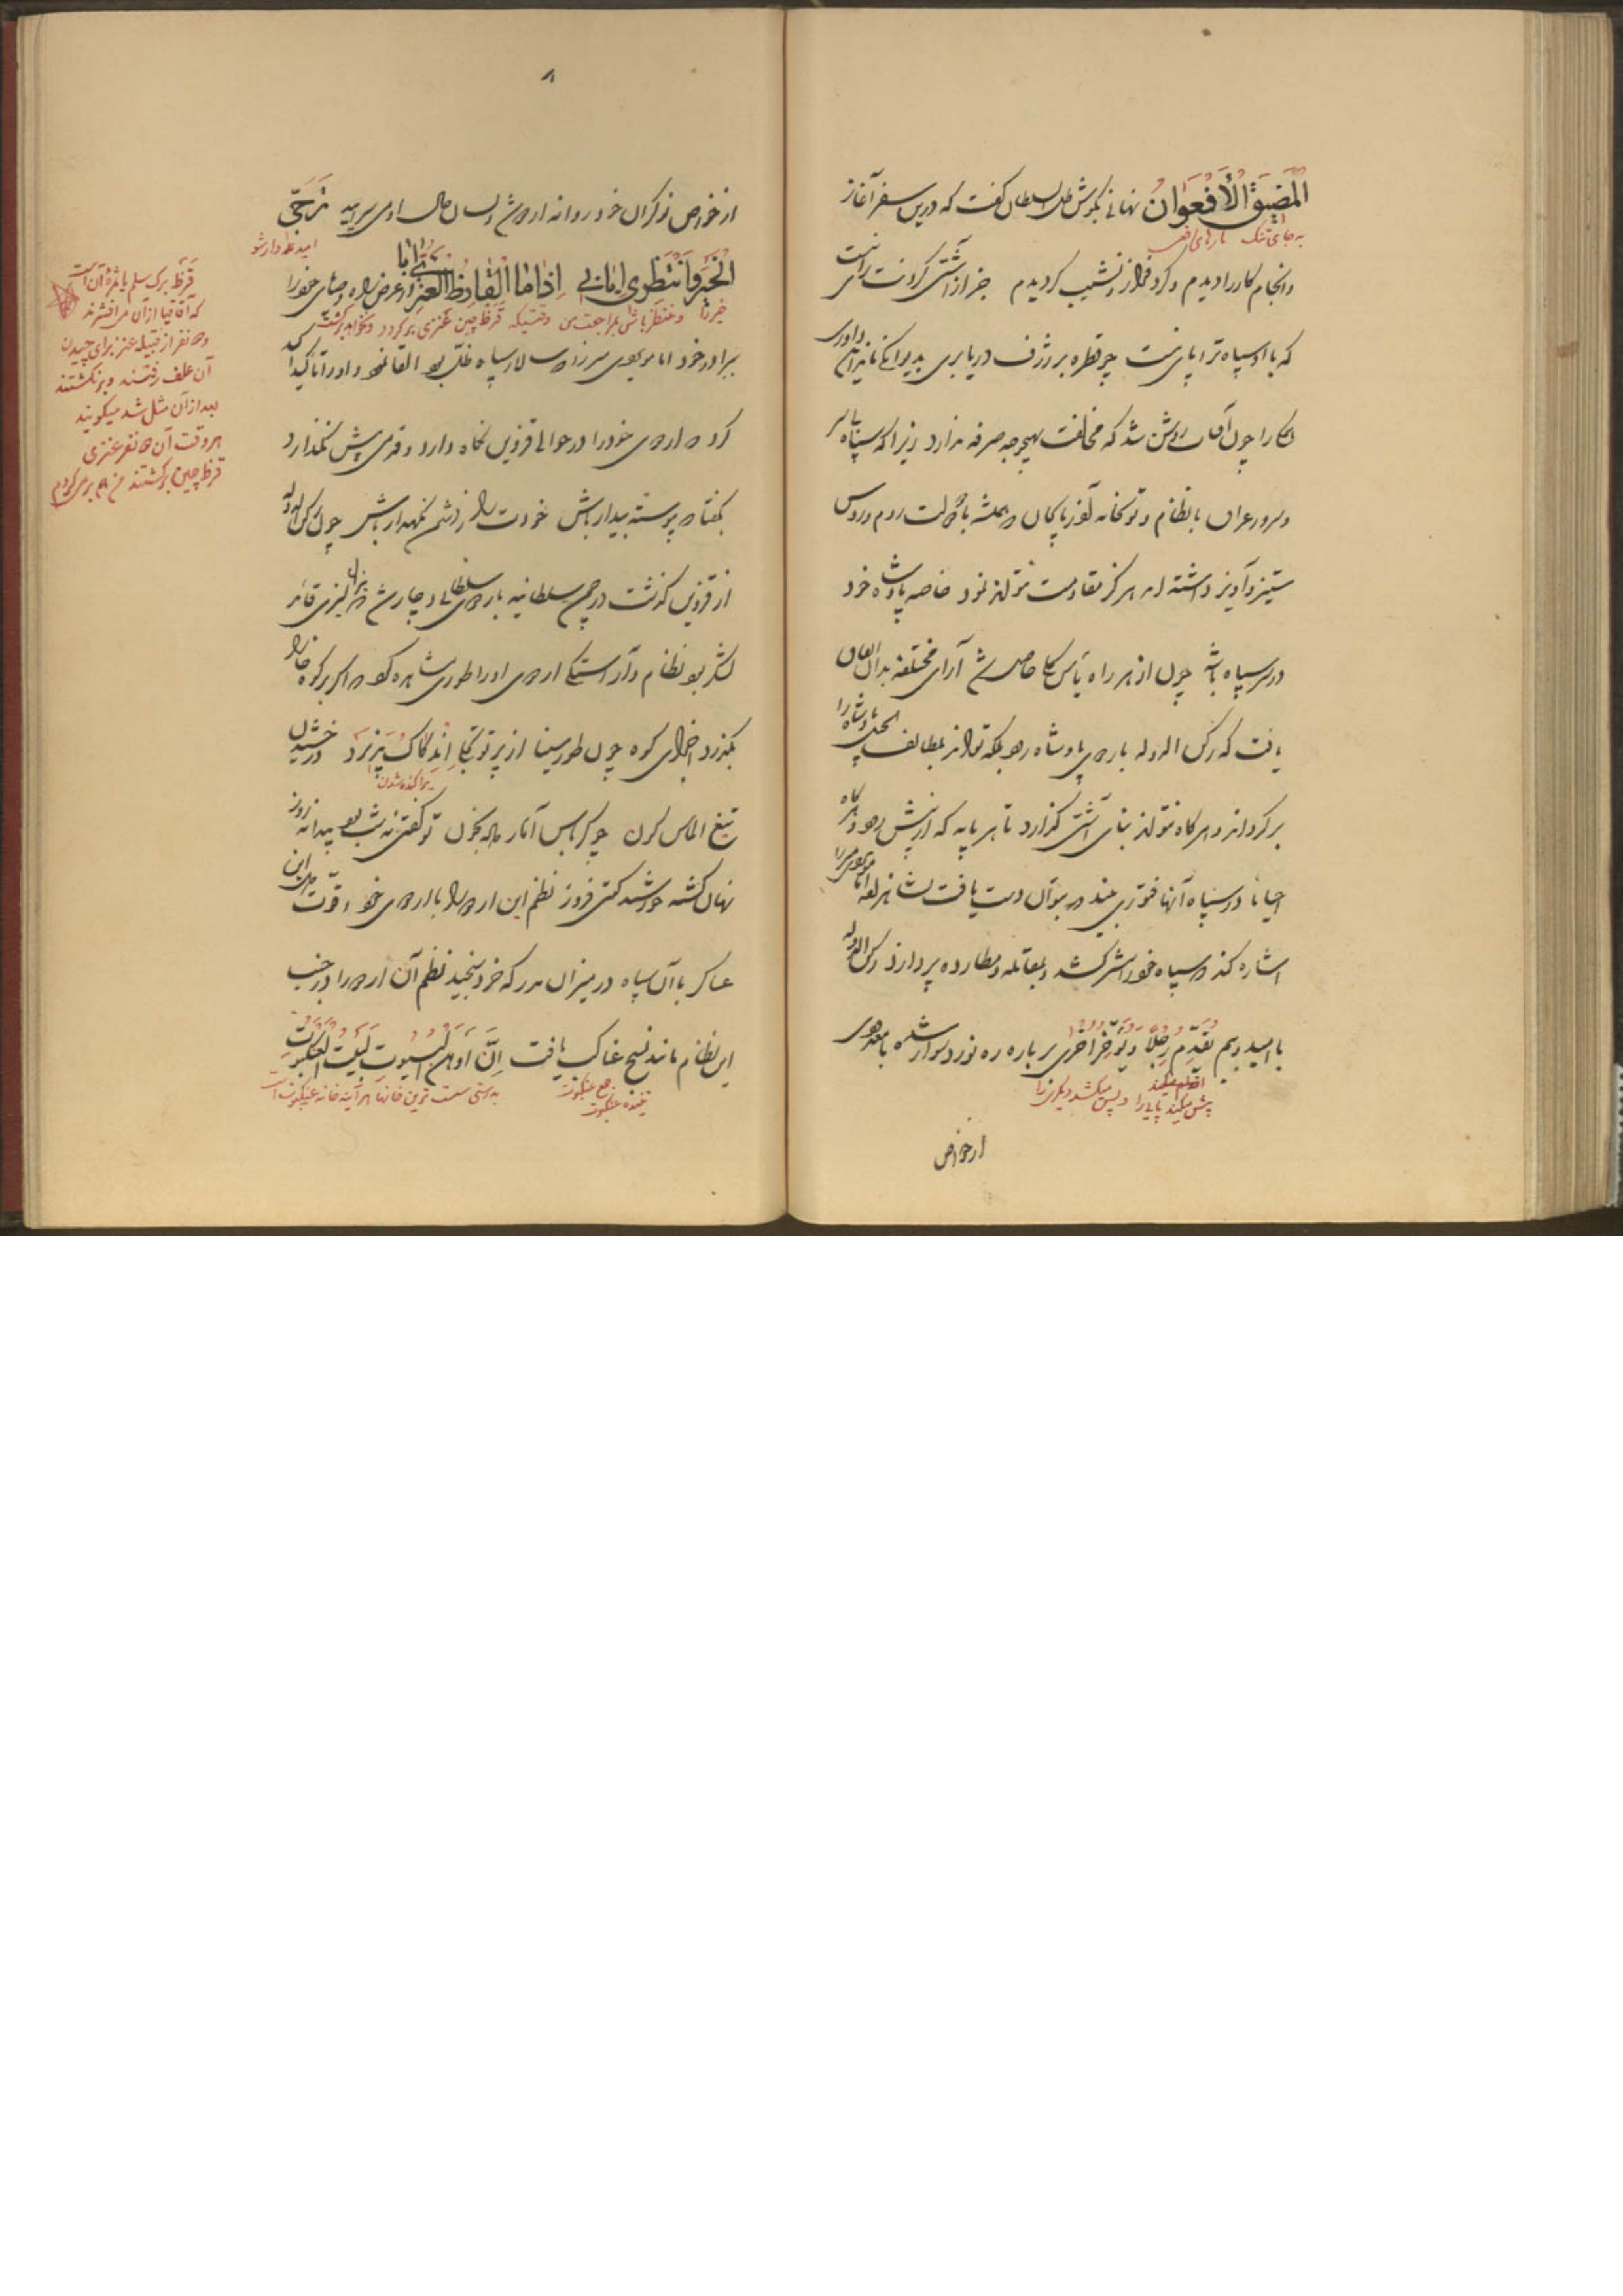 المضیق الأفعوان نهانی بگوش ظل السلطان گفت که درین سفر آغاز
به جای تنگ مارهای افعی
وانجام کار را دیدم و گرد فراز و نشیب گردیدم جز از آشتی گردنت رای نیست
که با او سپاه ترا پای نیست چو قطره بر ژرف دریا بری بدیوانگی ماند این داوری
چون آن روشن شد که مخالفت بهیچ وجه صرفه ندارد زیرا که سپاه
و سرور عراق با نظام و توپخانه آذربایجان که همیشه با دولت روم و روس
ستیز و آویز داشته اند هرگز مقاومت نتواند نمود خاصه پادشاه خود
در سپاه باشد چون از هر راه یأس کلی حاصل شد آرای مختلفه بدان اتفاق
یافت که رکن الدوله باردوی پادشاه رود بلکه تواند بلطایف الحیل پادشاه را
برگرداند و هرگاه نتواند بنای آشتی گذارد تا هر پایه که از پیش رود و هرگاه
احیانا در سپاه آنها فتوری بیند که بتوان دست یافت
اشاره کند که سپاه خود را سر کشد و بمقاتله و مطارده پردازد رکن الدوله
با امید و بیم تقدم رجلا و تؤخر اخری بر باره ره نورد سوار شده با معدودی
پیش میکند پایی را و پس میکشد دیگری را
از خواص
۸
از خواص نوکران خود روانه اردو شد و لسان حال او می سراید ترجّی
امیدوار شو
الخیر وانتظری ایابی اذا ما القارظ العنزی آبا
خیر را و منتظر باش بمراجعت من وقتیکه قرظ چین عنزی برگردد و نخواهد برگشت
برادر خود امام ویردی میرزا که سالار سپاه ظل بود القا نمود و او را تأکید اکید
کرد که اردوی خود را در حوالی قزوین نگاه دارد و قدمی پیش نگذارد
بگفتا که پیوسته بیدار باش خودت را ز دشمن نگهدار باش چون رکن الدوله
از قزوین گذشت در چمن سلطانیه باردوی سلطانی دچار شد
لشکر بود نظام و آراستگی اردوی او را طوری مشاهده نمود که اگر بر کوه خارا
بگذرد اجزای کوه چون طور سینا از پرتو تجلی اندکاک پذیرد درخشیدن
پراکنده شدن
تیغ الماس گون تو گفتی نه شب بود پیدا نه روز
نهان گشته خورشید گیتی فروز نظم این اردو را با اردوی خود و قوت این
عساکر با آن سپاه در میزان مدرکه خرد سنجید نظم آن اردو را در جنب
این نظام مانند نسج عناکب یافت ان اوهن البیوت لبیت العنکبوت
تنیده عنکبوت جمع عنکبوت بدرستی سست ترین خانها هر آینه خانه عنکبوت است
قرظ برگ سلم یا ثمره آن است
که آقاقیا از آن می افشرند
دو نفر از قبیله عنز برای چیدن
آن علف رفتند و برنگشتند
بعد از آن مثل شد میگویند
هر وقت آن دو نفر عنزی
قرظ چین برگشتند من هم برمی گردم